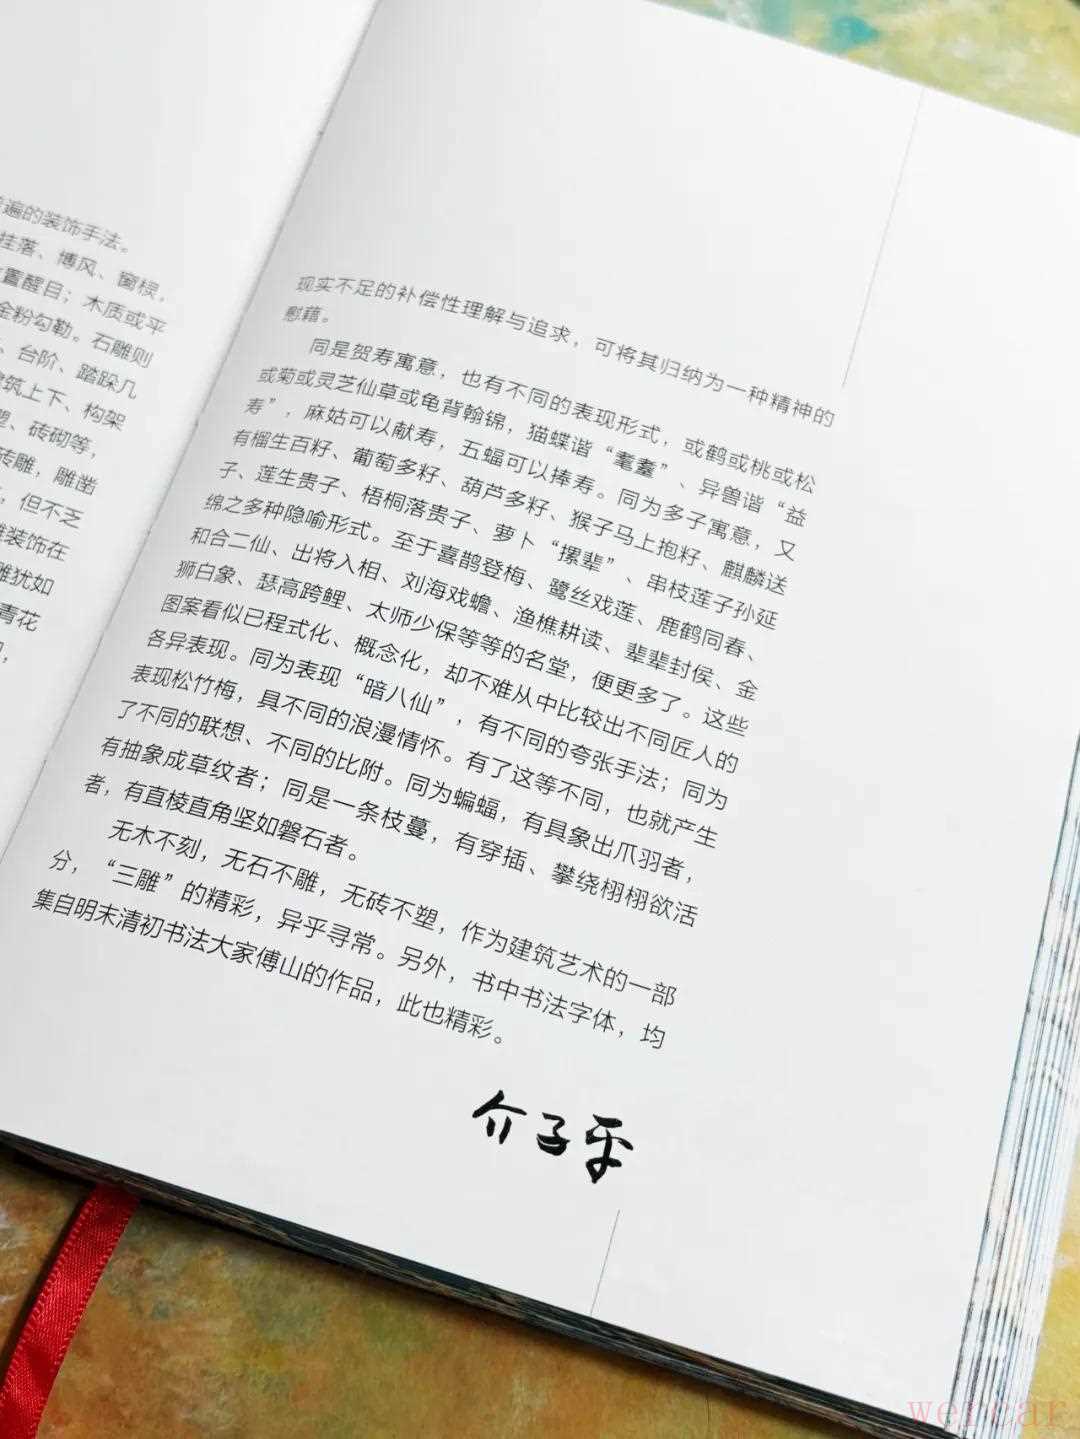 遍的装饰手法。
挂落、博风、窗棂，
置醒目；木质或平
金粉勾勒。石雕则
、台阶、踏跺几
筑上下、构架
塑、砖砌等，
砖雕，雕凿
，但不乏
雕装饰在
雕犹如
青花
，
现实不足的补偿性理解与追求，可将其归纳为一种精神的
慰藉。
同是贺寿寓意，也有不同的表现形式，或鹤或桃或松
或菊或灵芝仙草或龟背翰锦，猫蝶谐“耄耋”、异兽谐“益
寿”，麻姑可以献寿，五蝠可以捧寿。同为多子寓意，又
有榴生百籽、葡萄多籽、葫芦多籽、猴子马上抱籽、麒麟送
子、莲生贵子、梧桐落贵子、萝卜“摞辈”、串枝莲子孙延
绵之多种隐喻形式。至于喜鹊登梅、鹭丝戏莲、鹿鹤同春、
和合二仙、出将入相、刘海戏蟾、渔樵耕读、辈辈封侯、金
狮白象、瑟高跨鲤、太师少保等等的名堂，便更多了。这些
图案看似已程式化、概念化，却不难从中比较出不同匠人的
各异表现。同为表现“暗八仙”，有不同的夸张手法；同为
表现松竹梅，具不同的浪漫情怀。有了这等不同，也就产生
了不同的联想、不同的比附。同为蝙蝠，有具象出爪羽者，
有抽象成草纹者；同是一条枝蔓，有穿插、攀绕栩栩欲活
者，有直棱直角坚如磐石者。
无木不刻，无石不雕，无砖不塑，作为建筑艺术的一部
分，“三雕”的精彩，异乎寻常。另外，书中书法字体，均
集自明末清初书法大家傅山的作品，此也精彩。
介子平
wercar